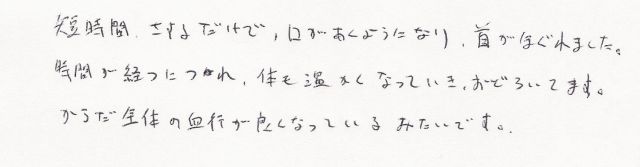 短時間、さするだけで、口があくようになり、首がほぐれました。
時間が経つにつれ、体も温かくなっていき、おどろいてます。
からだ全体の血行が良くなっているみたいです。